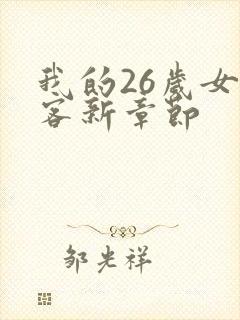 我的26歲女
客新章節
邹光祥